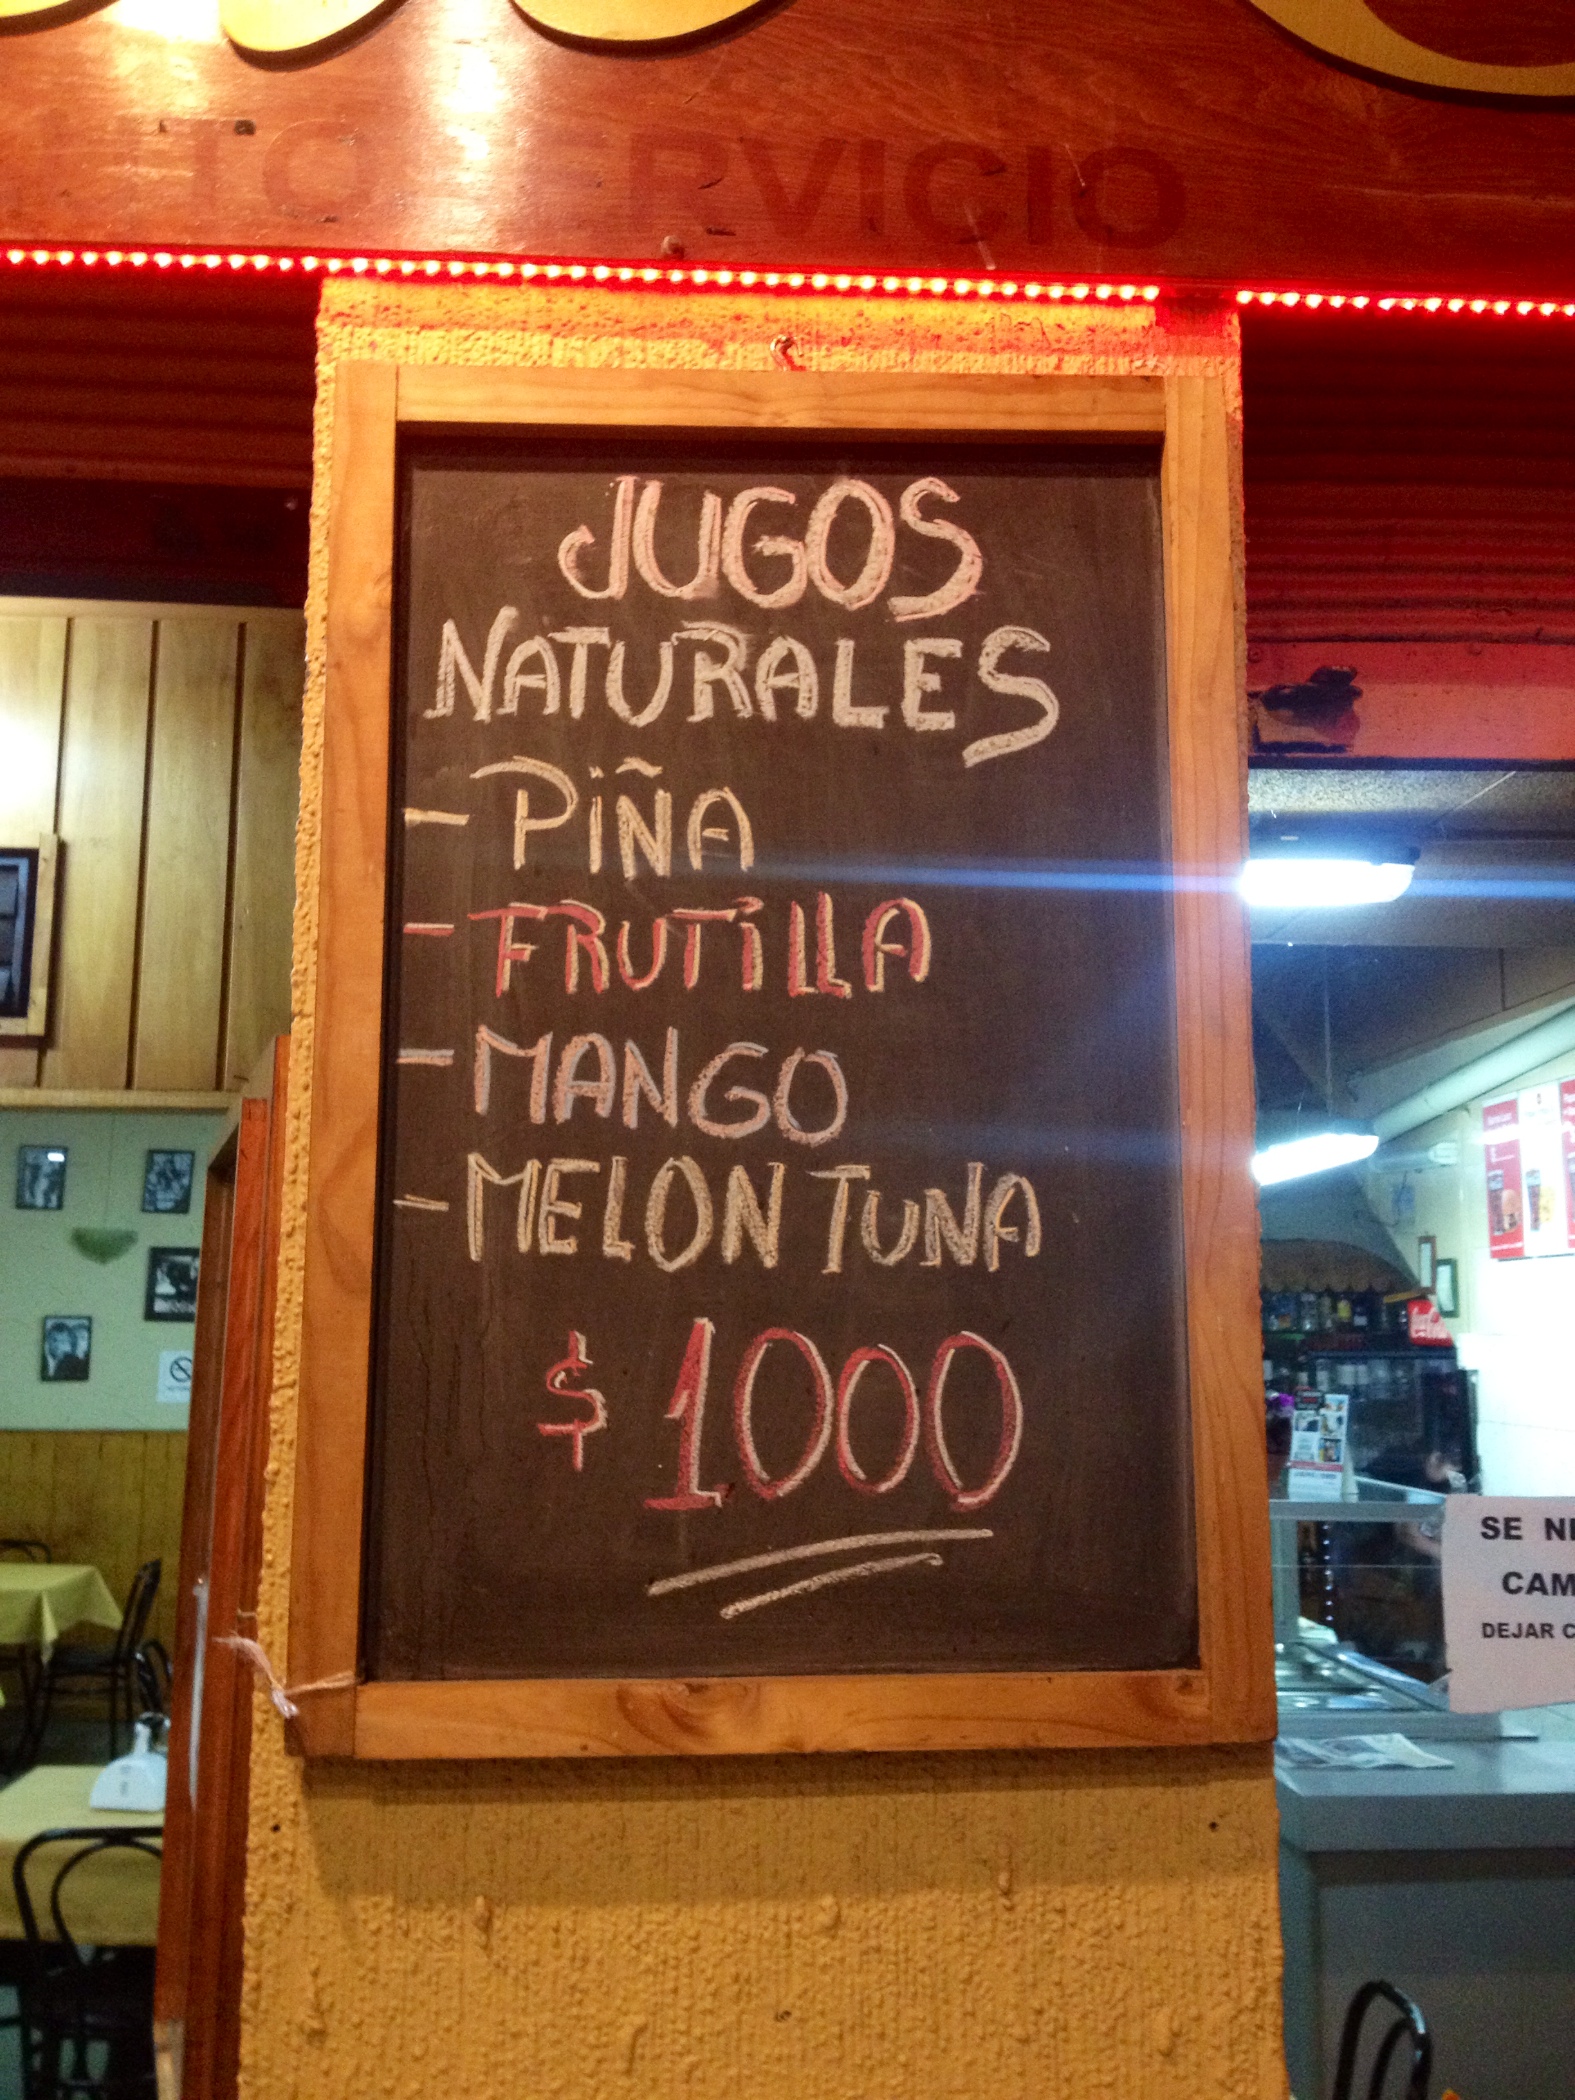 SERVICIO
JUGOS
NATURALES
- PIÑA
- FRUTILLA
- MANGO
- MELON TUNA
$ 1000
SE
DEJAR